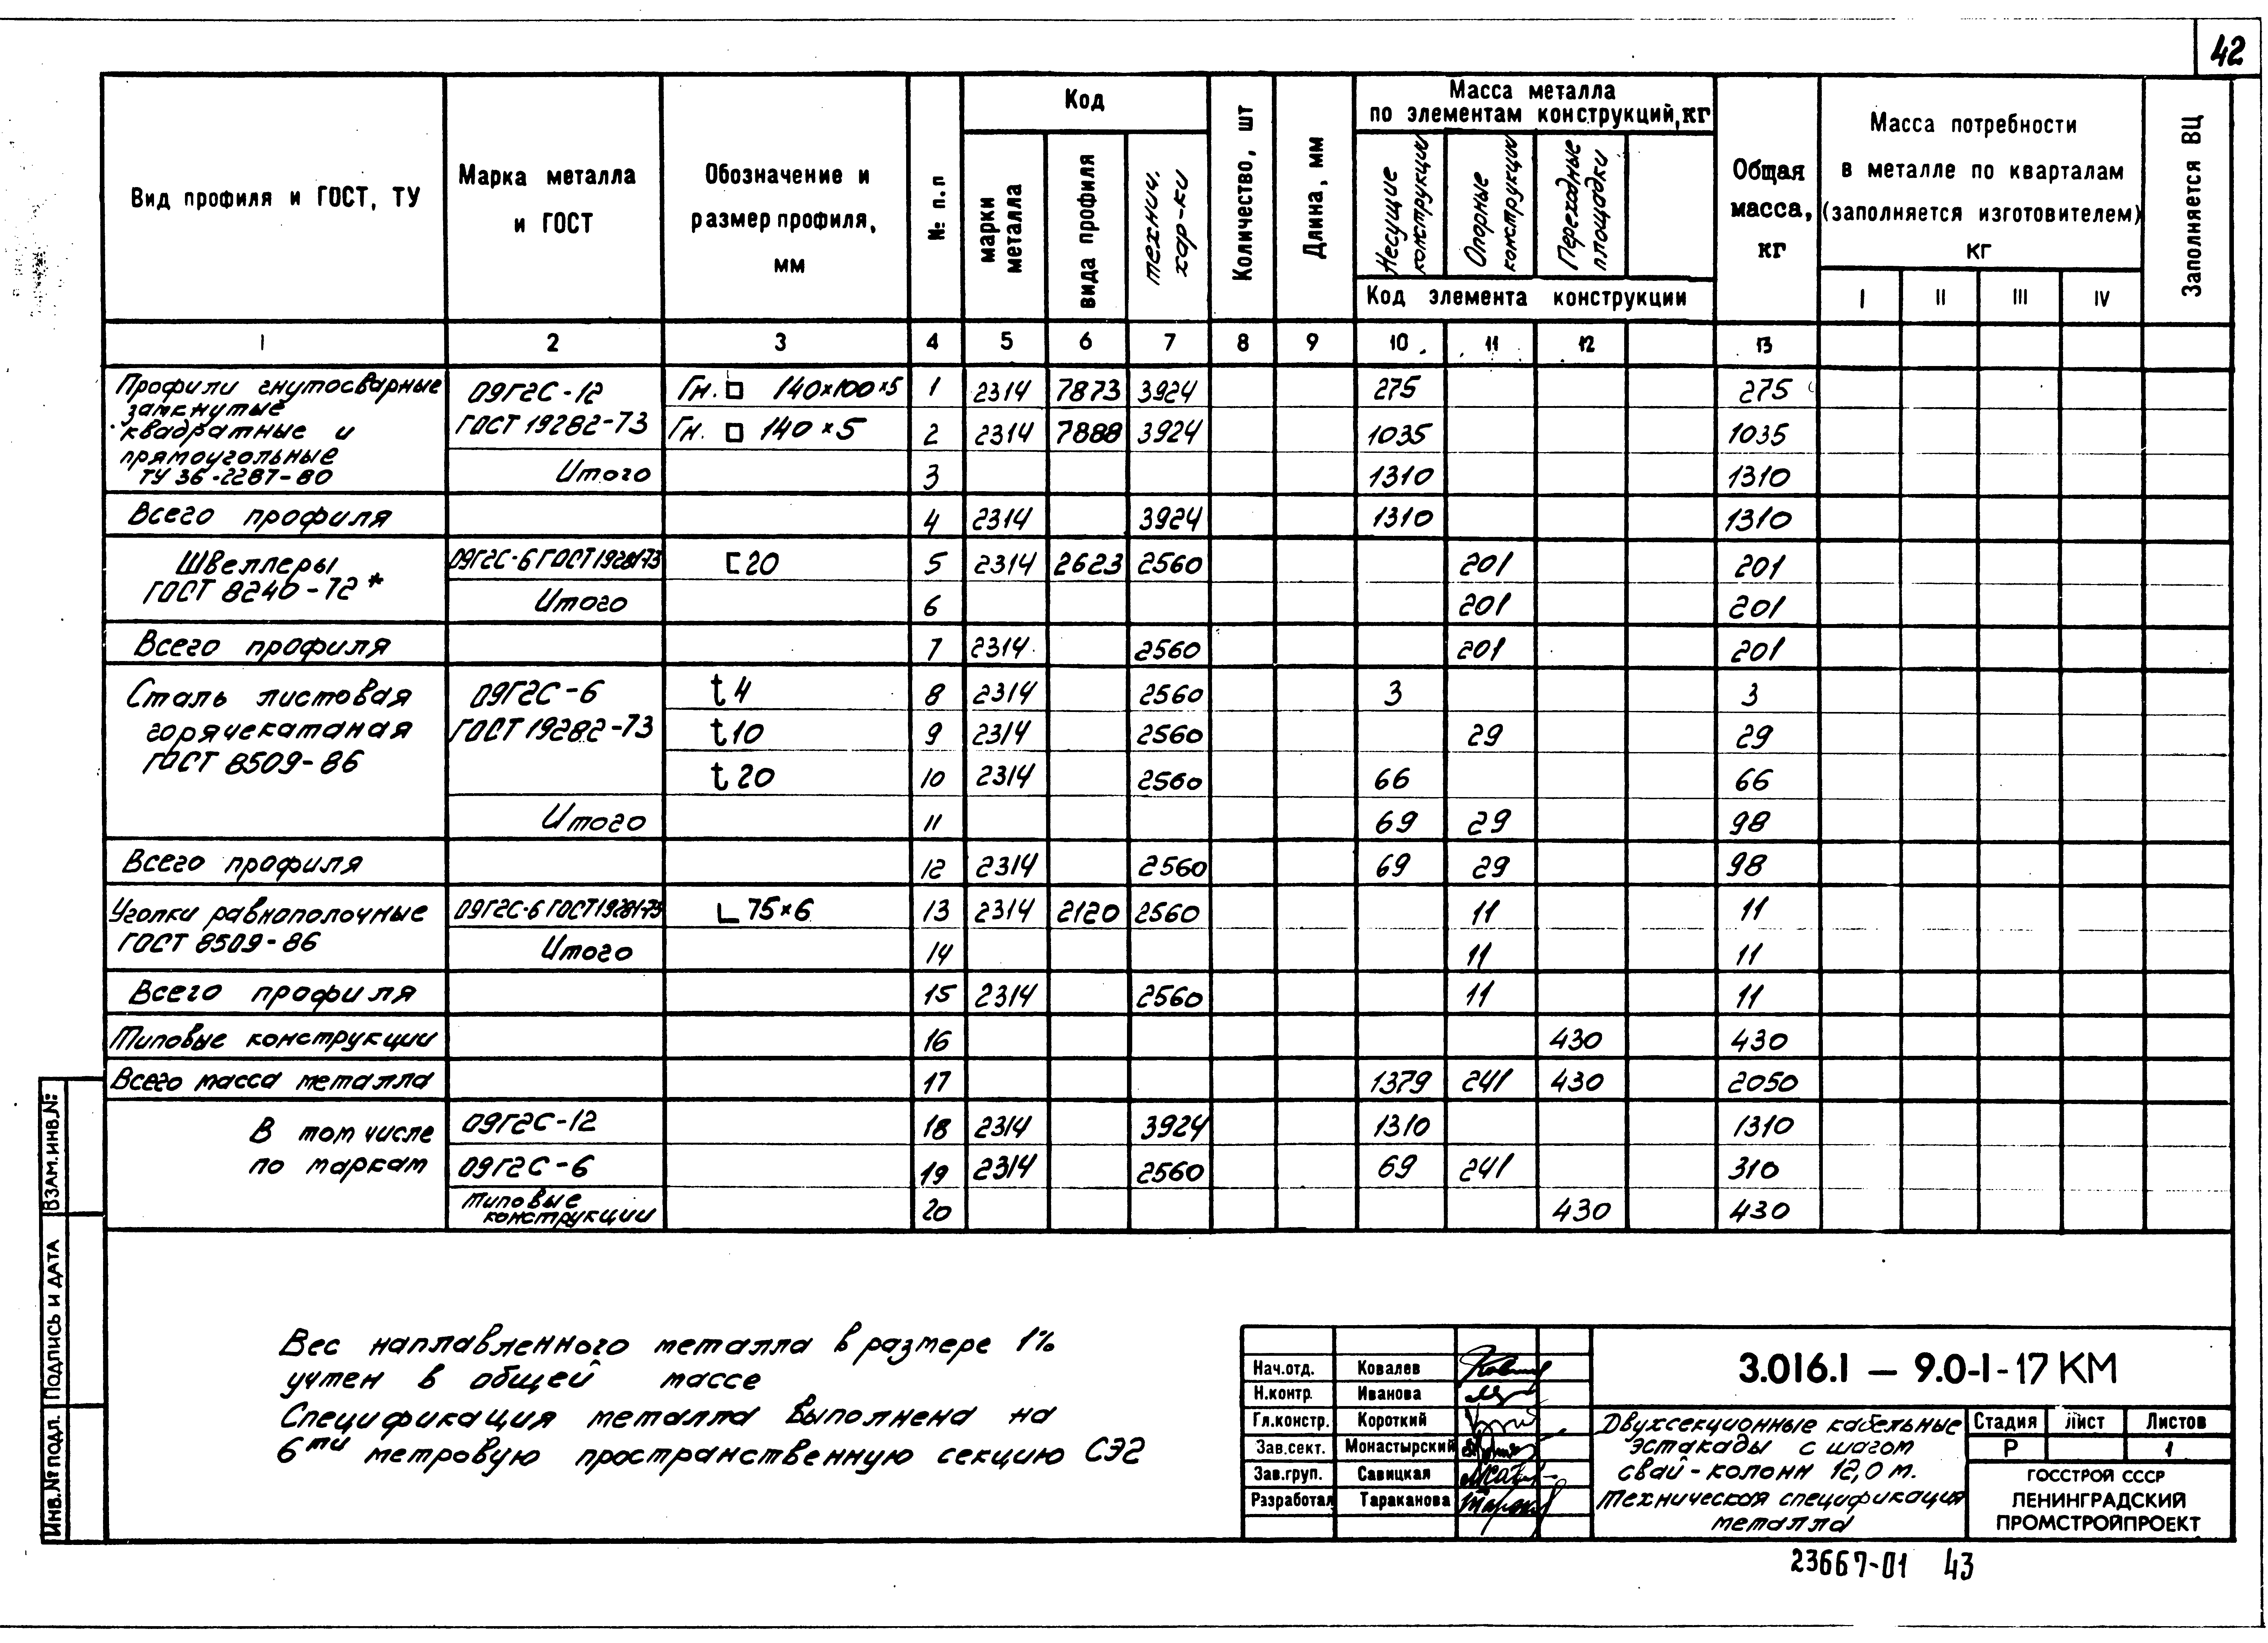 42
Вид профиля и ГОСТ, ТУ
Марка металла
и ГОСТ
Обозначение и
размер профиля,
мм
№ п.п
Код
марки
металла
вида профиля
технич.
хар-ки
Количество, шт
Длина, мм
Масса металла
по элементам конструкций, кг
Несущие
конструкции
Опорные
конструкции
Переходные
площадки
Код элемента конструкции
Общая
масса,
кг
Масса потребности
в металле по кварталам
(заполняется изготовителем)
кг
I II III IV
Заполняется ВЦ
1 2 3 4 5 6 7 8 9 10 11 12 13
Профили гнутосварные
замкнутые
квадратные и
прямоугольные
ТУ 36-2287-80
09Г2С-12
ГОСТ 19282-73
Гн. □ 140×100×5 1 2314 7873 3924 275 275
Гн. □ 140×5 2 2314 7888 3924 1035 1035
Итого 3 1310 1310
Всего профиля 4 2314 3924 1310 1310
Швеллеры
ГОСТ 8240-72*
09Г2С-6 ГОСТ 19281-73 [20 5 2314 2623 2560 201 201
Итого 6 201 201
Всего профиля 7 2314 2560 201 201
Сталь листовая
горячекатаная
ГОСТ 8509-86
09Г2С-6
ГОСТ 19282-73
t4 8 2314 2560 3 3
t10 9 2314 2560 29 29
t20 10 2314 2560 66 66
Итого 11 69 29 98
Всего профиля 12 2314 2560 69 29 98
Уголки равнополочные
ГОСТ 8509-86
09Г2С-6 ГОСТ 19281-73 ∟75×6 13 2314 2120 2560 11 11
Итого 14 11 11
Всего профиля 15 2314 2560 11 11
Типовые конструкции 16 430 430
Всего масса металла 17 1379 241 430 2050
В том числе
по маркам
09Г2С-12 18 2314 3924 1310 1310
09Г2С-6 19 2314 2560 69 241 310
типовые
конструкции 20 430 430
Вес наплавленного металла в размере 1%
учтен в общей массе
Спецификация металла выполнена на
6ти метровую пространственную секцию СЭ2
Взам.инв.№
Подпись и дата
Инв.№ подл.
Нач.отд. Ковалев
Н.контр. Иванова
Гл.констр. Короткий
Зав.сект. Монастырский
Зав.груп. Савицкая
Разработал Тараканова
3.016.1 — 9.0-1-17 КМ
Двухсекционные кабельные
эстакады с шагом
свай-колонн 12,0 м.
Техническая спецификация
металла
Стадия Лист Листов
Р 1
ГОССТРОЙ СССР
ЛЕНИНГРАДСКИЙ
ПРОМСТРОЙПРОЕКТ
23667-01 43